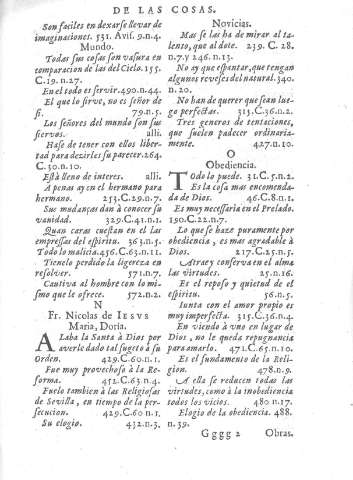 DE LAS COSAS.
Son faciles en dexarse llevar de
imaginaciones. 531. Avis. 9. n.4.
Mundo.
Todas sus cosas son vasura en
comparacion de las del Cielo. 155.
C. 19. n.27.
En el todo es servir. 490. n.44.
El que lo sirve, no es señor de
si. 79. n.5.
Los señores del mundo son sus
siervos. alli.
Hase de tener con ellos liber-
tad para dezirles su parecer. 264.
C. 30. n.10.
Està lleno de interes. alli.
A penas ay en el hermano para
hermano. 253. C. 29. n.7.
Sus mudanças dan à conocer su
vanidad. 329. C. 41. n.1.
Quan caras cuestan en el las
empressas del espiritu. 363. n.5.
Todo lo malicia. 456. C. 63. n.11.
Tienelo perdido la ligereza en
resolver. 571. n.7.
Cautiva al hombre con lo mis-
mo que le ofrece. 572. n.2.
N
Fr. Nicolas de IESVS
Maria, Doria.
ALaba la Santa à Dios por
averle dado tal sugeto à su
Orden. 429. C. 60. n.1.
Fue muy provechoso à la Re-
forma. 452. C. 63. n.4.
Fuelo tambien à las Religiosas
de Sevilla, en tiempo de la per-
secucion. 429. C. 60 n.1.
Su elogio. 432. n.3.
Novicias.
Mas se las ha de mirar al ta-
lento, que al dote. 239. C. 28.
n.7. y 246. n.13.
No ay que espantar, que tengan
algunos reveses del natural. 340.
n.20.
No han de querer que sean lue-
go perfectas. 315. C. 36. n.2.
Tres generos de tentaciones,
que suelen padecer ordinaria-
mente. 427. n.10.
O
Obediencia.
TOdo lo puede. 31. C. 5. n.2.
Es la cosa mas encomenda-
da de Dios. 46. C. 8. n.1.
Es muy necessaria en el Prelado.
190. C. 22. n.7.
Lo que se haze puramente por
obediencia, es mas agradable à
Dios. 217. C. 25. n.5.
Atrae y conserva en el alma
las virtudes. 25. n.16.
Es el reposo y quietud de el
espiritu. 56. n.5.
Iunta con el amor propio es
muy imperfecta. 315. C. 36. n.4.
En viendo à uno en lugar de
Dios, no le queda repugnancia
para amarlo. 471. C. 65. n.10.
Es el fundamento de la Reli-
gion. 478. n.9.
A ella se reducen todas las
virtudes, como à la inobediencia
todos los vicios. 480 n.17.
Elogio de la obediencia. 488.
n.39.
Gggg 2 Obras.